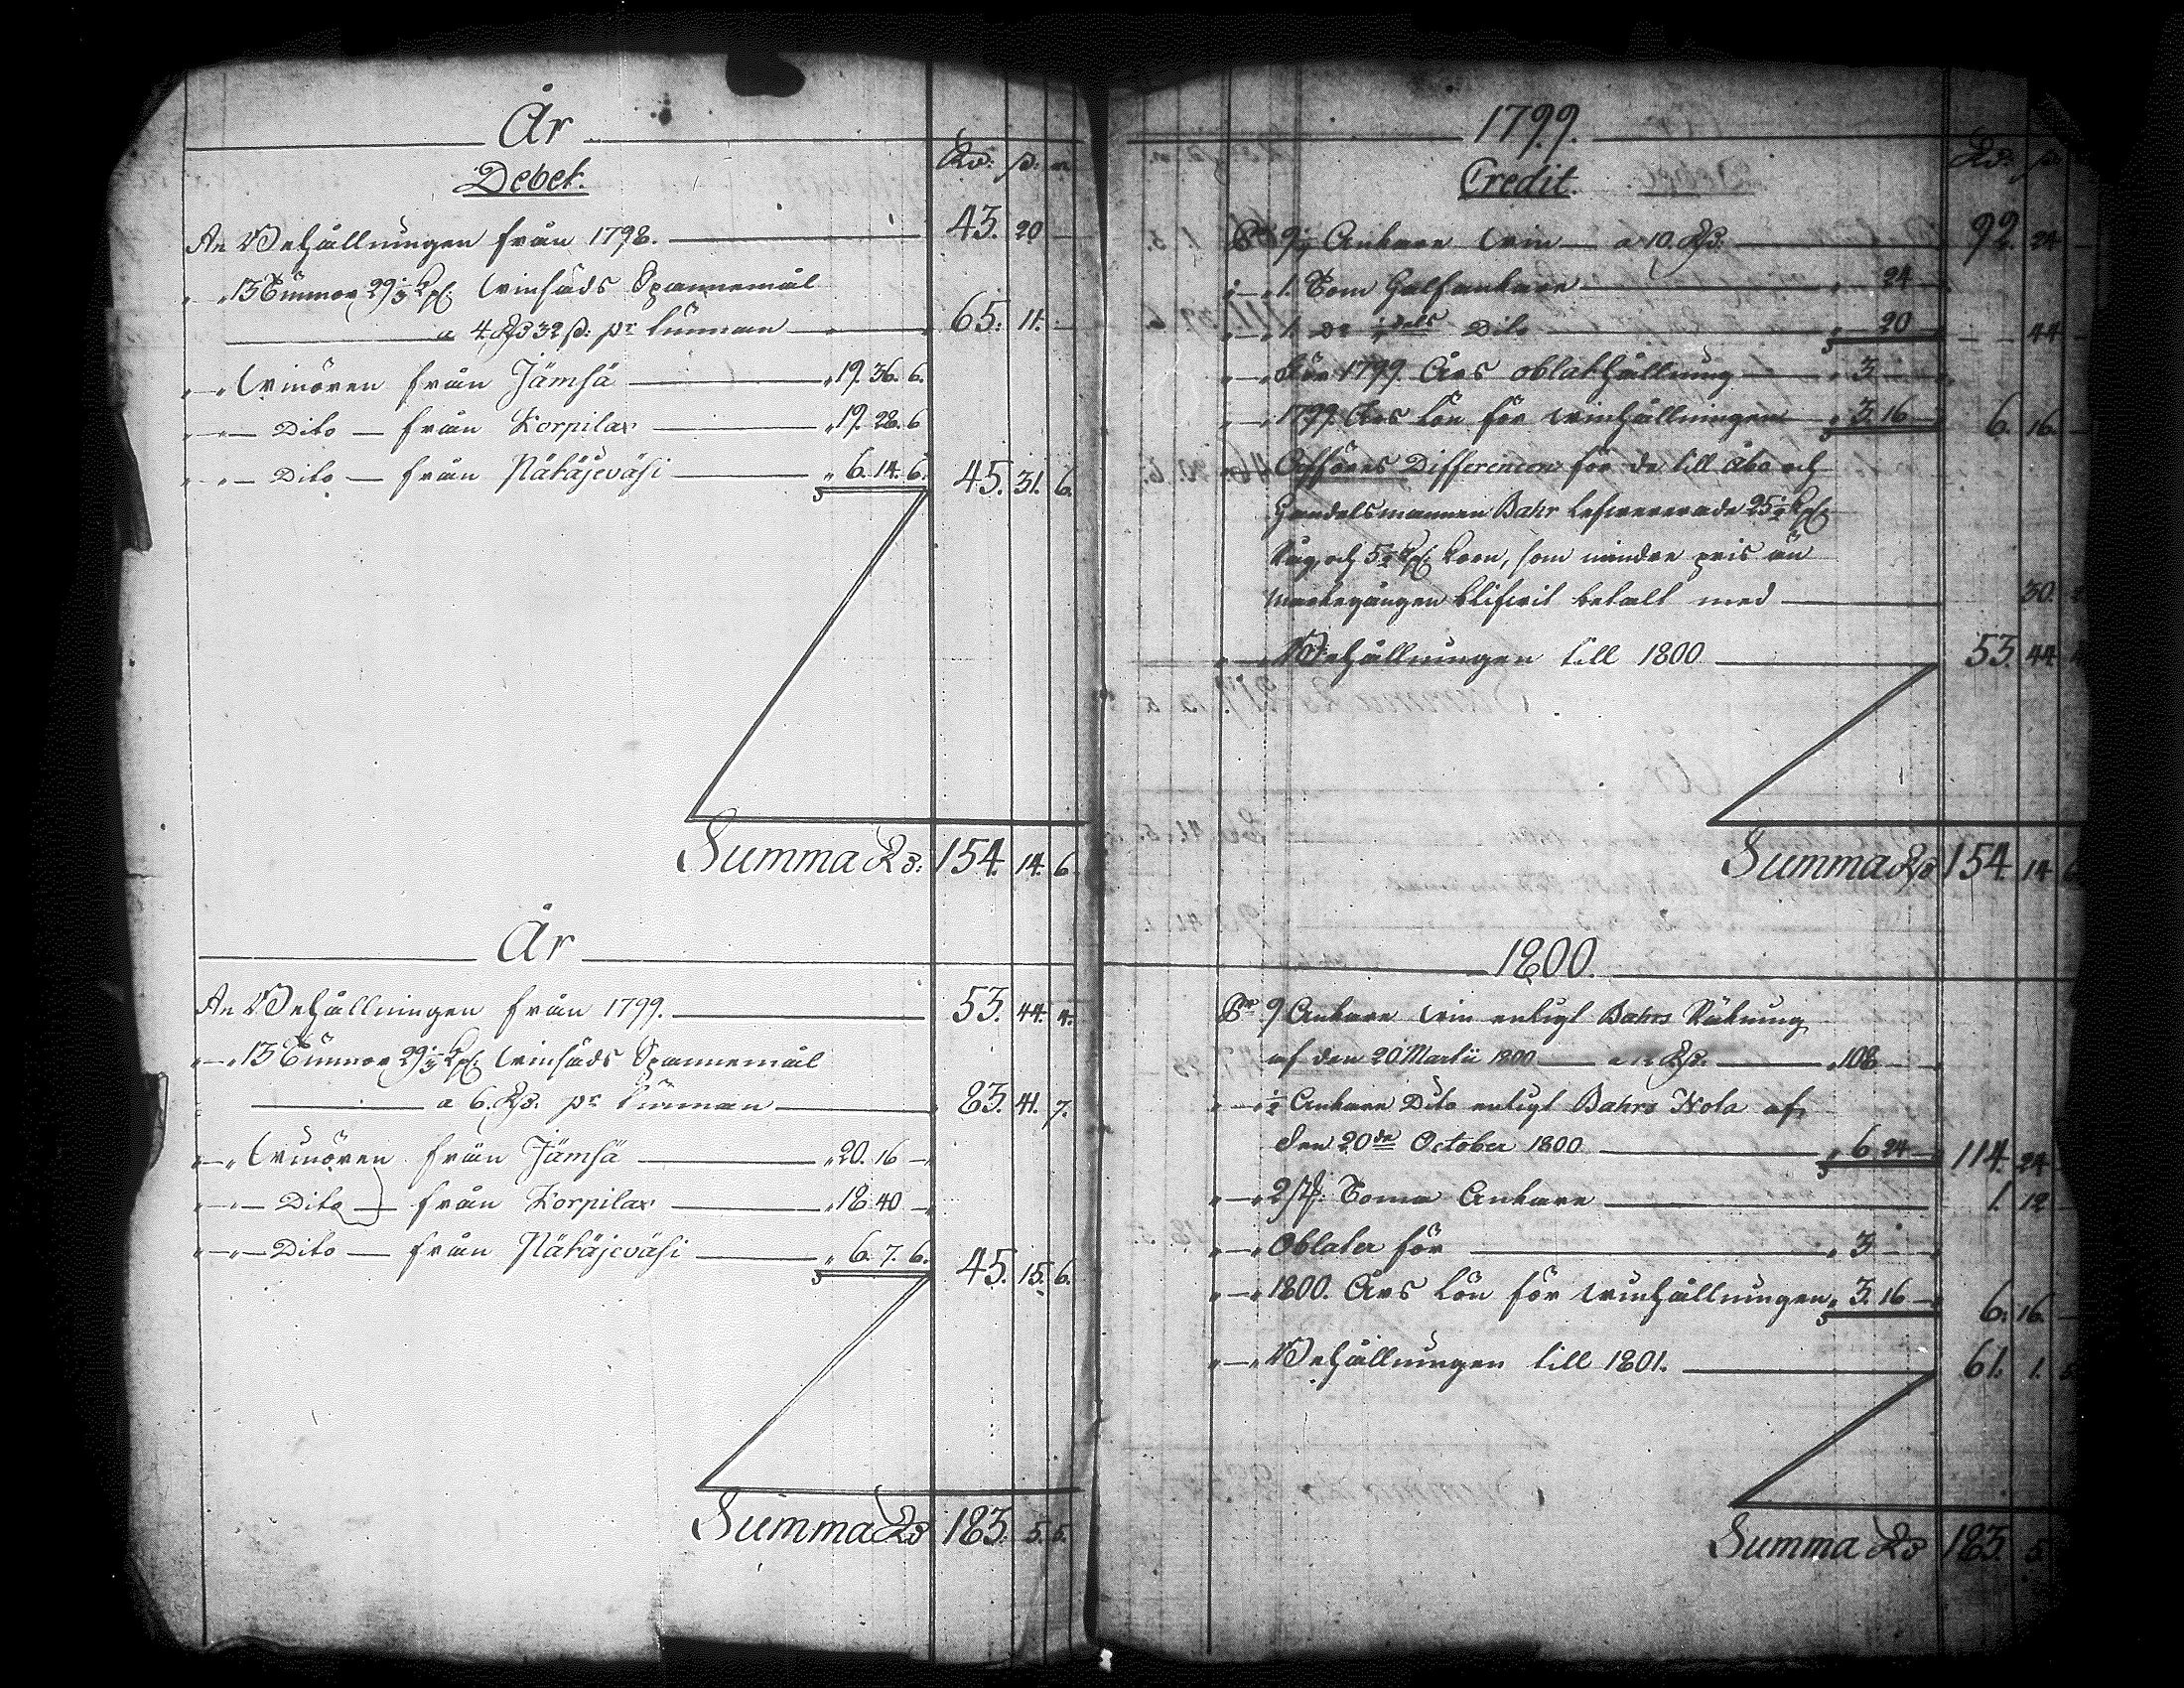 År
Debet.
Rd: ß: r
An Behållningen från 1798. 43. 20 —
" " 13 Tunnor 29 1/3 Kp: Winsäds Spannemål
a 4 Rd 32 ß: pr Tunnan 65. 11. —
" — " Winören från Jämsä " 19. 36. 6.
" — " — Dito — från Korpilax " 19. 28. 6
" — " — Dito — från Pätäjeväsi " 6. 14. 6. 45. 31. 6.
Summa Rd: 154. 14. 6
År
An Behållningen från 1799. 53. 44. 4.
" — " 13 Tunnor 29 1/3 Kp: Winsäds Spannemål
a 6. Rd: pr Tunnan 83. 41. 7.
" — " Winören från Jämsä " 20. 16 —
" — " — Dito — från Korpilax " 18. 40 —
" — " — Dito — från Pätäjeväsi " 6. 7. 6. 45. 15. 6.
Summa Rd 183. 5. 5.
1799.
Credit.
Rd: ß:
Pr 9 1/4 Ankare Win — a 10. Rd: 92. 24 —
" — " 1. Tom Halfankare " 24 —
" — " 1. Do 1/4 dels Dito " 20 — 44 —
" — " För 1799 Års oblathållning " 3 —
" — " 1799 Års Lön för Winhållningen " 3. 16 — 6. 16. —
" Afföres Differencen för de till Åbo och
Handelsmannen Bahr lefwererade 25 1/2 Kp:
Råg, och 5 1/2 Kp: Korn, som mindre pris än
Markegången blifwit betalt med 30.
" — " Behållningen till 1800 53. 44
Summa Rd 154. 14. 6
1800.
Pr 9 Ankare Win enligt Bahrs Räkning
af den 20 Martii 1800 — a 12 Rd: " 108 —
" — " 1/2 Ankare Dito enligt Bahrs Nota af
den 20de October 1800 " 6. 24 — 114. 24 —
" — " 2 st: Toma Ankare 1. 12 —
" — " Oblater för " 3 —
" — " 1800. Års Lön för Winhållningen " 3. 16 — 6. 16. —
" — " Behållningen till 1801. 61. 1.
Summa Rd 183. 5.